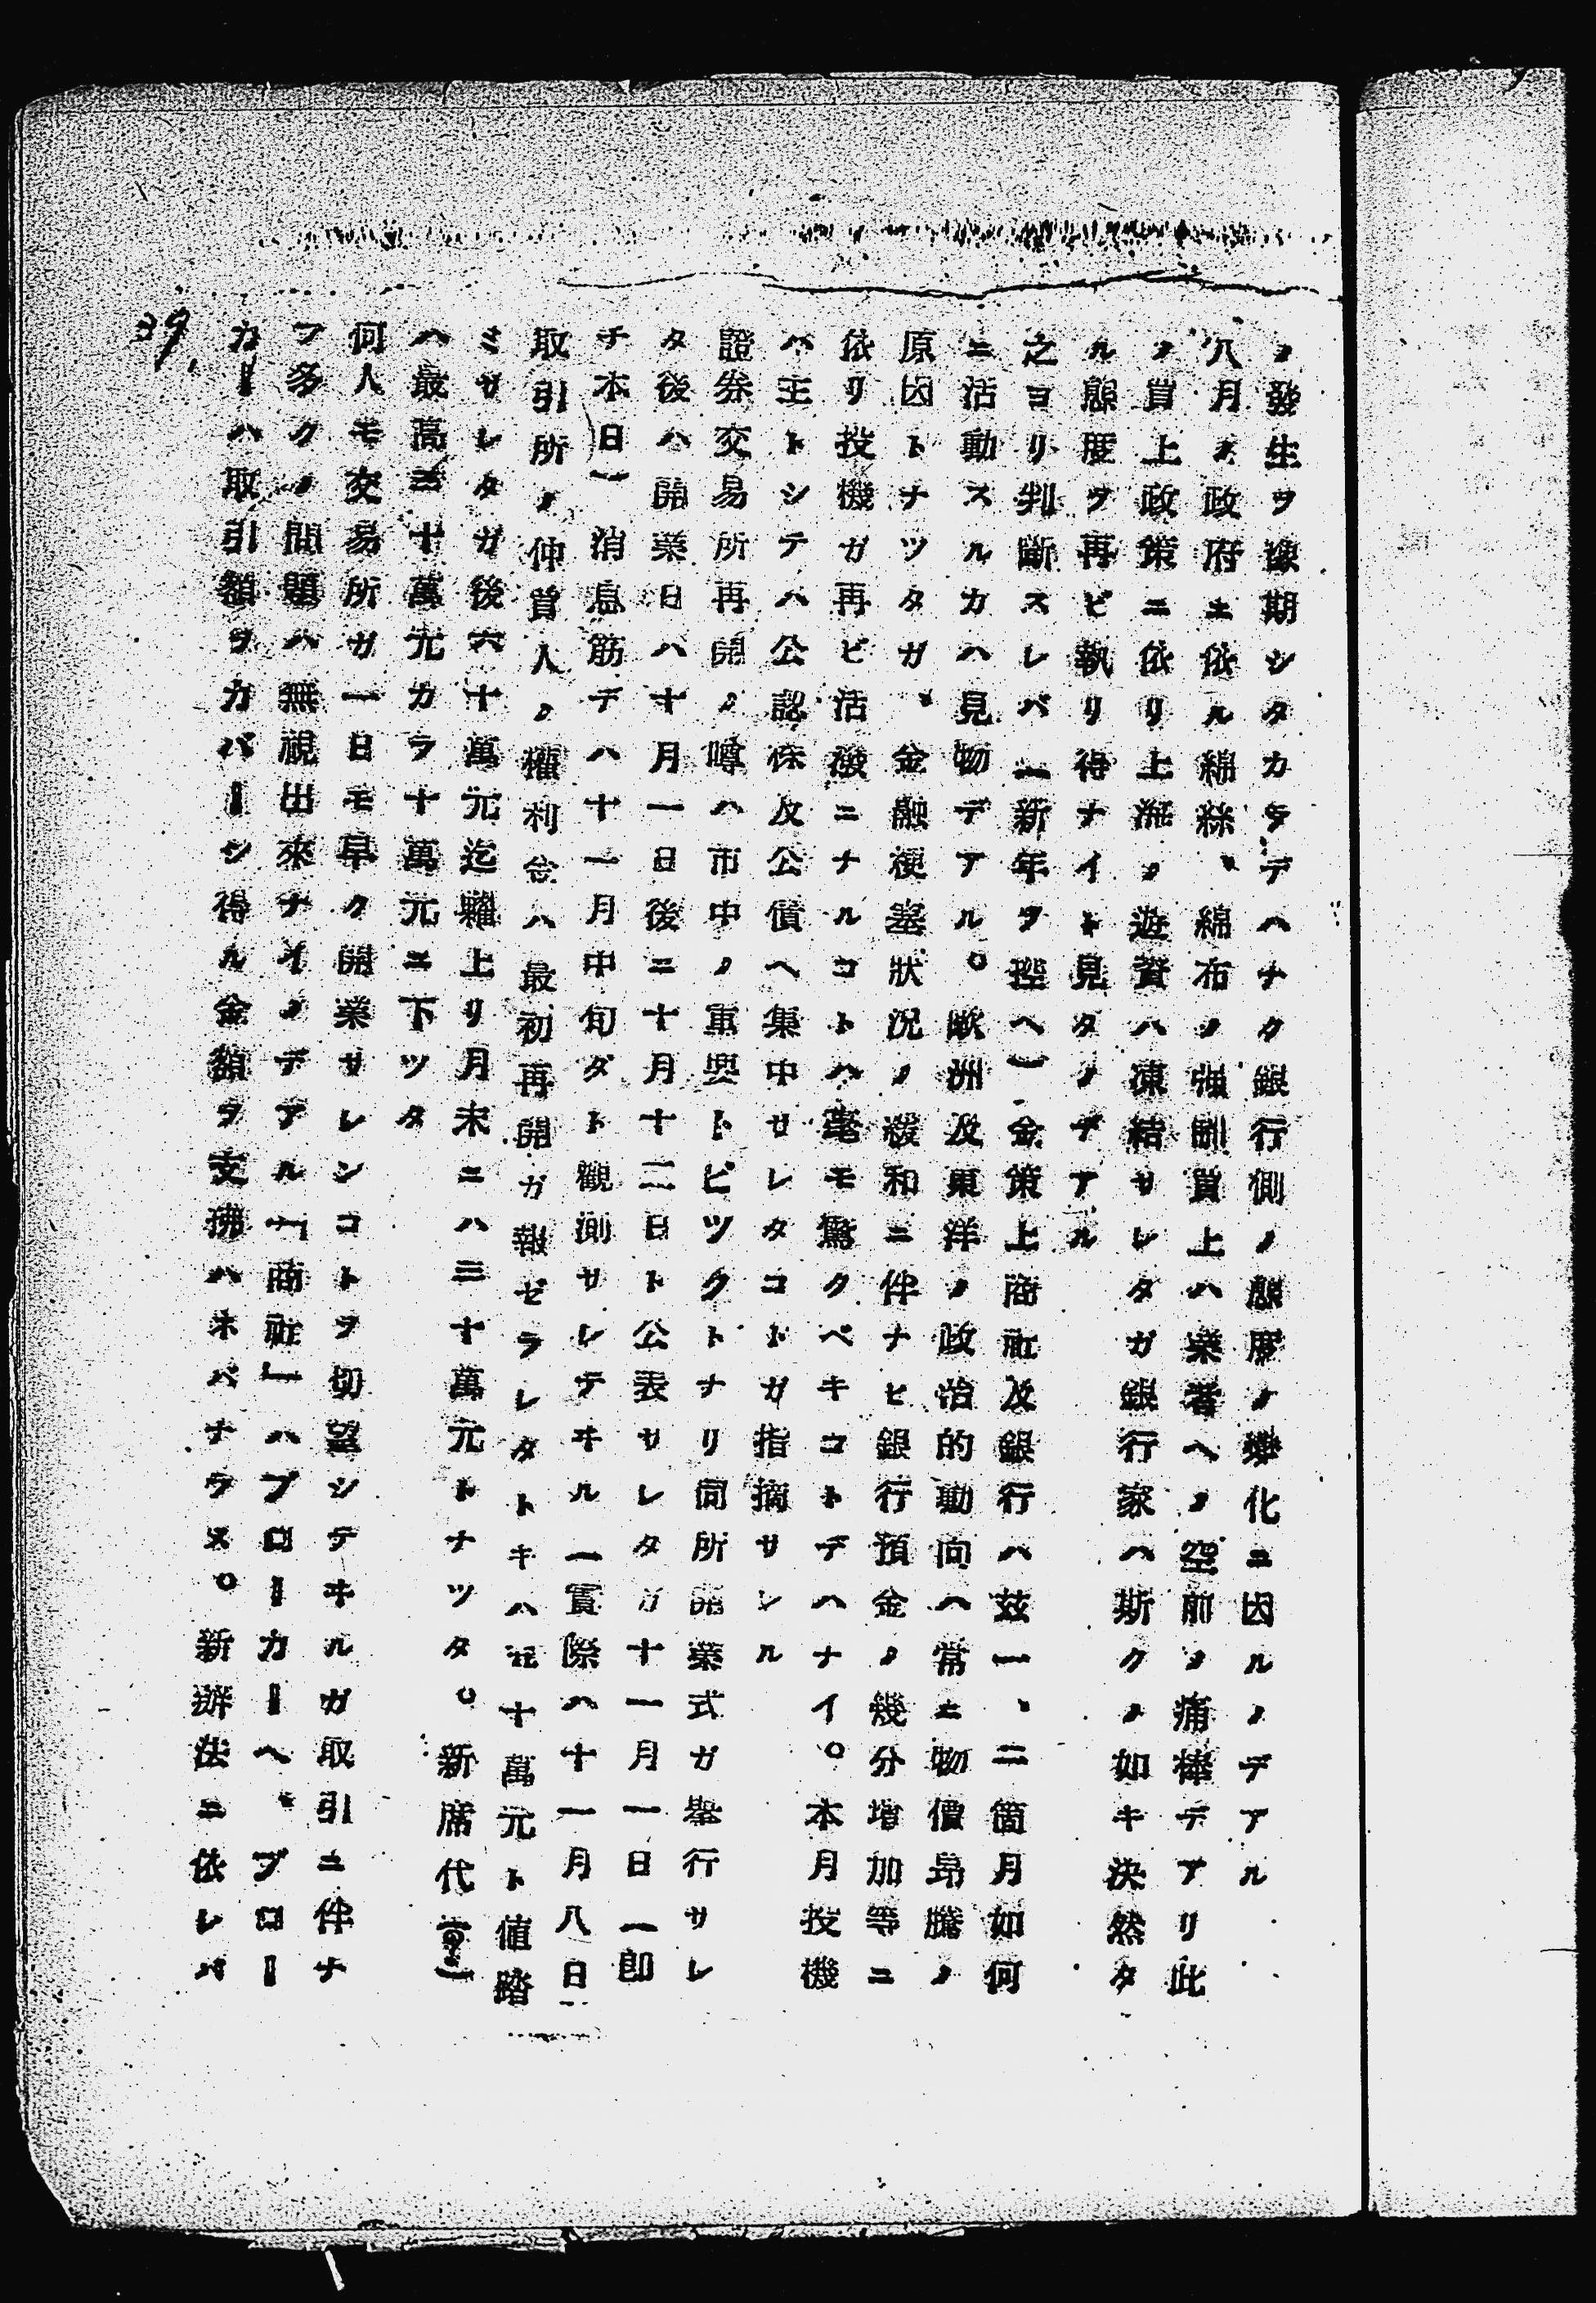 ノ發生ヲ豫期シタカラデハナク銀行側ノ態度ノ變化ニ因ルノデアル
八月ノ政府ニ依ル綿絲、綿布ノ強制買上ハ業者ヘノ空前ノ痛棒デアリ此
ノ買上政策ニ依リ上海ノ遊資ハ凍結サレタガ銀行家ハ斯クノ如キ決然タ
ル態度ヲ再ビ執リ得ナイト見タノデアル
之ヨリ判斷スレバ(新年ヲ控ヘ)金策上商社及銀行ハ茲一、二箇月如何
ニ活動スルカハ見物デアル。歐洲及東洋ノ政治的動向ハ常ニ物價昂騰ノ
原因トナツタガ、金融梗塞狀況ノ緩和ニ伴ナヒ銀行預金ノ幾分増加等ニ
依リ投機ガ再ビ活潑ニナルコトハ毫モ驚クベキコトデハナイ。本月投機
ハ主トシテハ公認株及公債ヘ集中サレタコトガ指摘サレル
證券交易所再開ノ噂ハ市中ノ重興トビツクトナリ同所開業式ガ擧行サレ
タ後ハ開業日ハ十月一日後ニ十月十二日ト公表サレタガ十一月一日(即
チ本日)消息筋デハ十一月中旬ダト觀測サレテヰル(實際ハ十一月八日)
取引所ノ仲買人ノ權利金ハ最初再開ガ報ゼラレタトキハ五十萬元ト値踏
ミサレタガ後六十萬元迄糶上リ月末ニハ三十萬元トナツタ。新席代
ハ最高三十萬元カラ十萬元ニ下ツタ
何人モ交易所ガ一日モ早ク開業サレンコトヲ切望シテヰルガ取引ニ伴ナ
フ多クノ問題ハ無視出來ナイノデアル「商社」ハブローカーヘ、ブロー
カーハ取引額ヲカバーシ得ル金額ヲ支拂ハネバナラヌ。新辦法ニ依レバ
39.